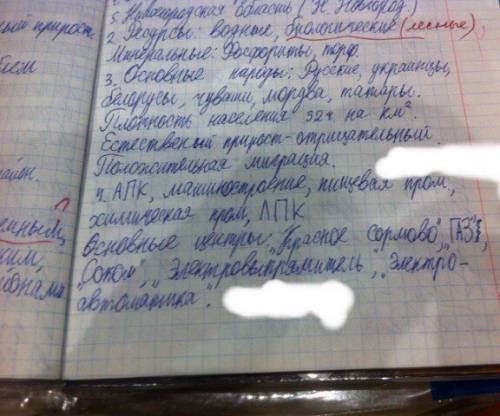 5. Нижегородская область (Н. Новгород)
2. Ресурсы: водные, биологические (лесные),
Минеральные: Фосфориты, торф.
3. Основные народы: Русские, украинцы,
беларусы, чуваши, мордва, татары.
Плотность населения 32ч на км².
Естественый прирост - отрицательный.
Положительная миграция.
4. АПК, машиностроение, пищевая пром,
химическая пром, ЛПК
Основные центры: "Красное сормово", "ГАЗ",
"Сокол", "Электровыпрямитель", "Электро-
автоматика".
ный прирост